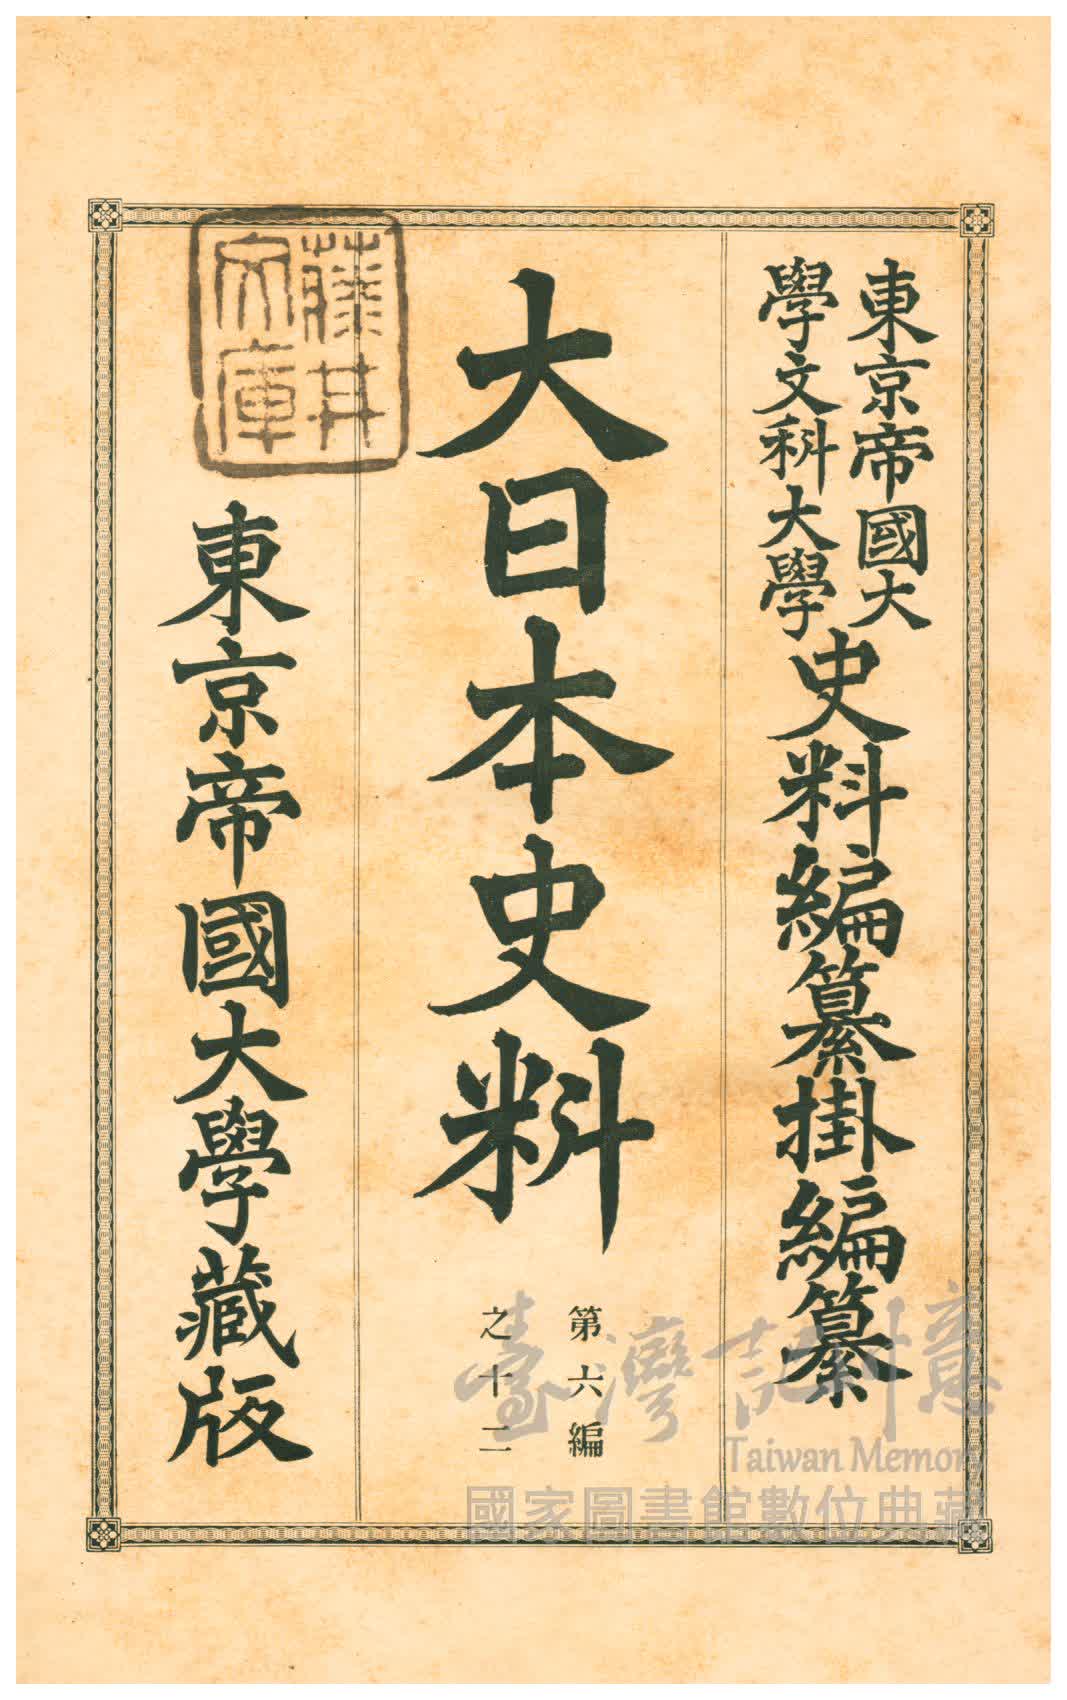 東京帝國大
學文科大學
史料編纂掛編纂
大日本史料
第六編
之十二
藤井
文庫
東京帝國大學藏版
臺灣記憶
Taiwan Memory
國家圖書館數位典藏